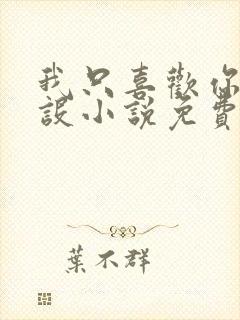 我只喜歡你
設小說免費
葉不群